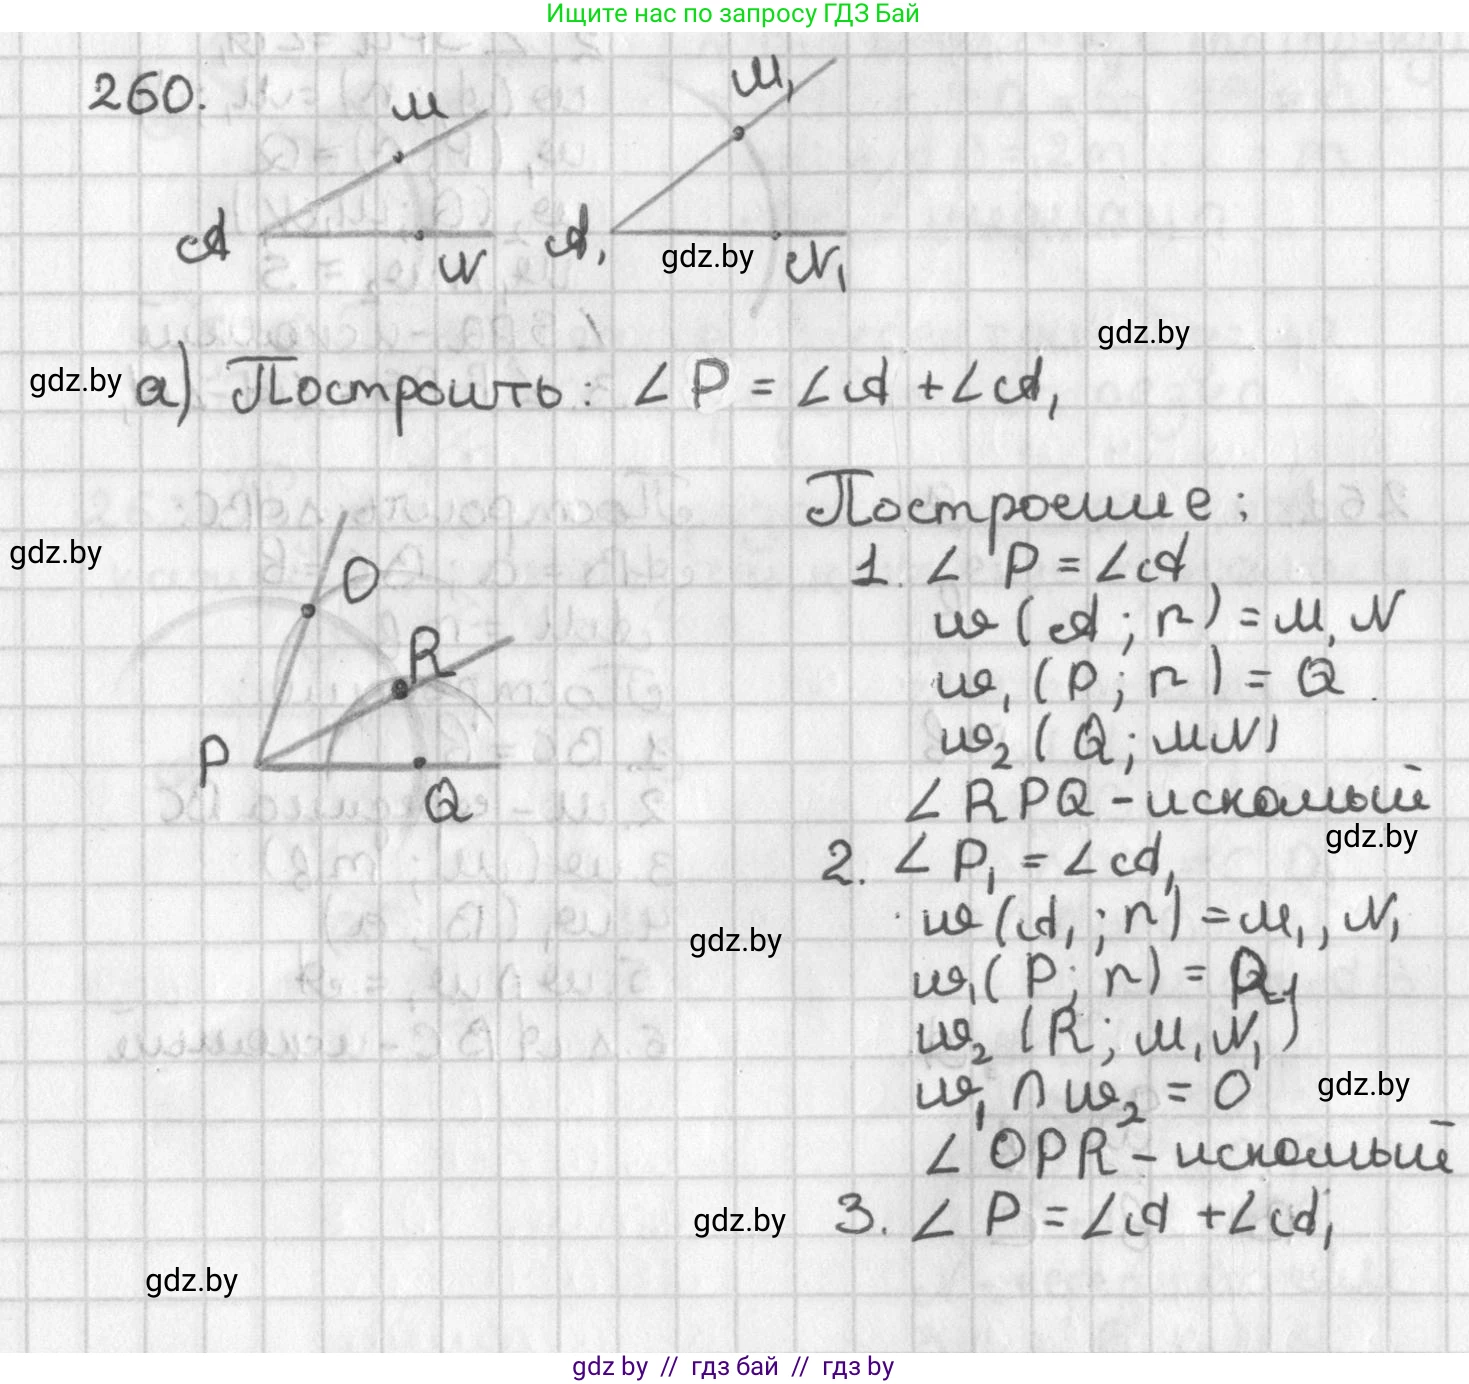 Ищите нас по запросу ГДЗ Бай
260.
M
M₁
A
N
A₁
N₁
gdz.by
gdz.by
gdz.by
а) Построить: ∠P = ∠A + ∠A₁
Построение:
gdz.by
O
R
P
Q
1. ∠P = ∠A
ω(A; r) = M, N
ω₁(P; r) = Q
ω₂(Q; MN)
∠RPQ – искомый
gdz.by
2. ∠P₁ = ∠A₁
ω(A₁; r) = M₁, N₁
gdz.by
ω₁(P; r) = R₁
ω₂(R; M₁N₁)
ω₁ ∩ ω₂ = O
gdz.by
∠OPR – искомый
3. ∠P = ∠A + ∠A₁
gdz.by
gdz.by
gdz by // гдз бай // гдз by